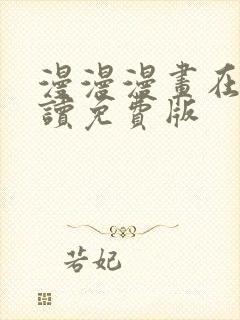 漫漫漫畫在
讀免費版
若妃